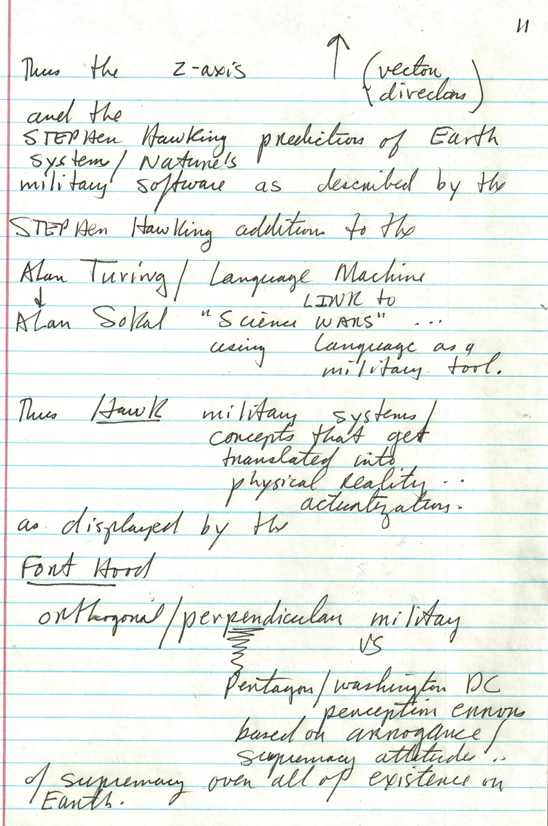 11
Thus the z-axis ↑ (vector
directions)
and the
STEPHen Hawking prediction of Earth
system/Nature's
military software as described by the
STEPHen Hawking addition to the
Alan Turing/Language Machine
↓ LINK to
Alan Sokal "Science WARS" ...
using Language as a
military tool.
Thus Hawk military systems/
concepts that get
translated into
physical reality ...
actualization.
as displayed by the
Font Hood
orthogonal/perpendicular military
VS
Pentagon/Washington DC
perception errors
based on arrogance/
supremacy attitudes ..
of supremacy over all of existence on
Earth.